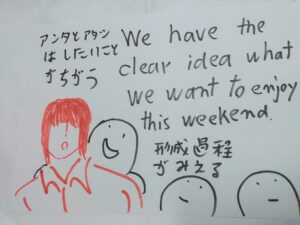 アンタとアタシ
はしたいこと
がちがう
We have the
clear idea what
we want to enjoy
this weekend.
形成過程
がみえる